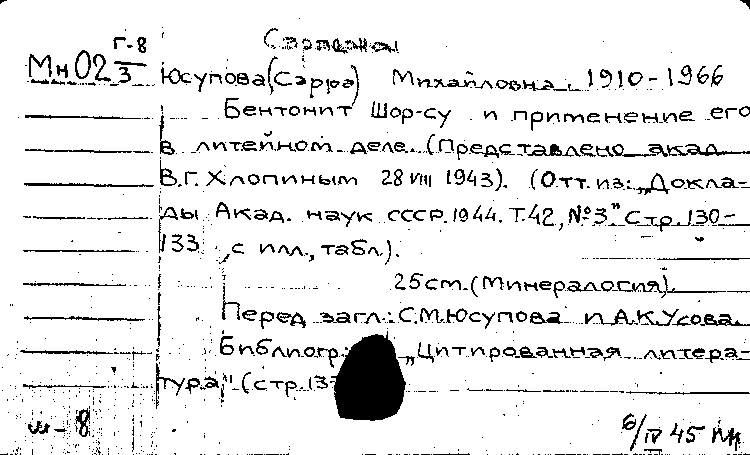 Г-8
Мн02 3
Юсупова (Сарра) Михайловна. 1910-1966
Бентонит Шор-су и применение его
в литейном деле. (Представлено акад.
В.Г. Хлопиным 28 VIII 1943). (Отт. из: „Докла-
ды Акад. наук СССР. 1944. Т. 42, №3." Стр. 130-
133, с илл., табл.).
25 cm. (Минералогия).
Перед загл.: С.М. Юсупова и А.К. Усова.
Библиогр: „Цитированная литера-
тура" (стр.
ш-8
6/IV 45